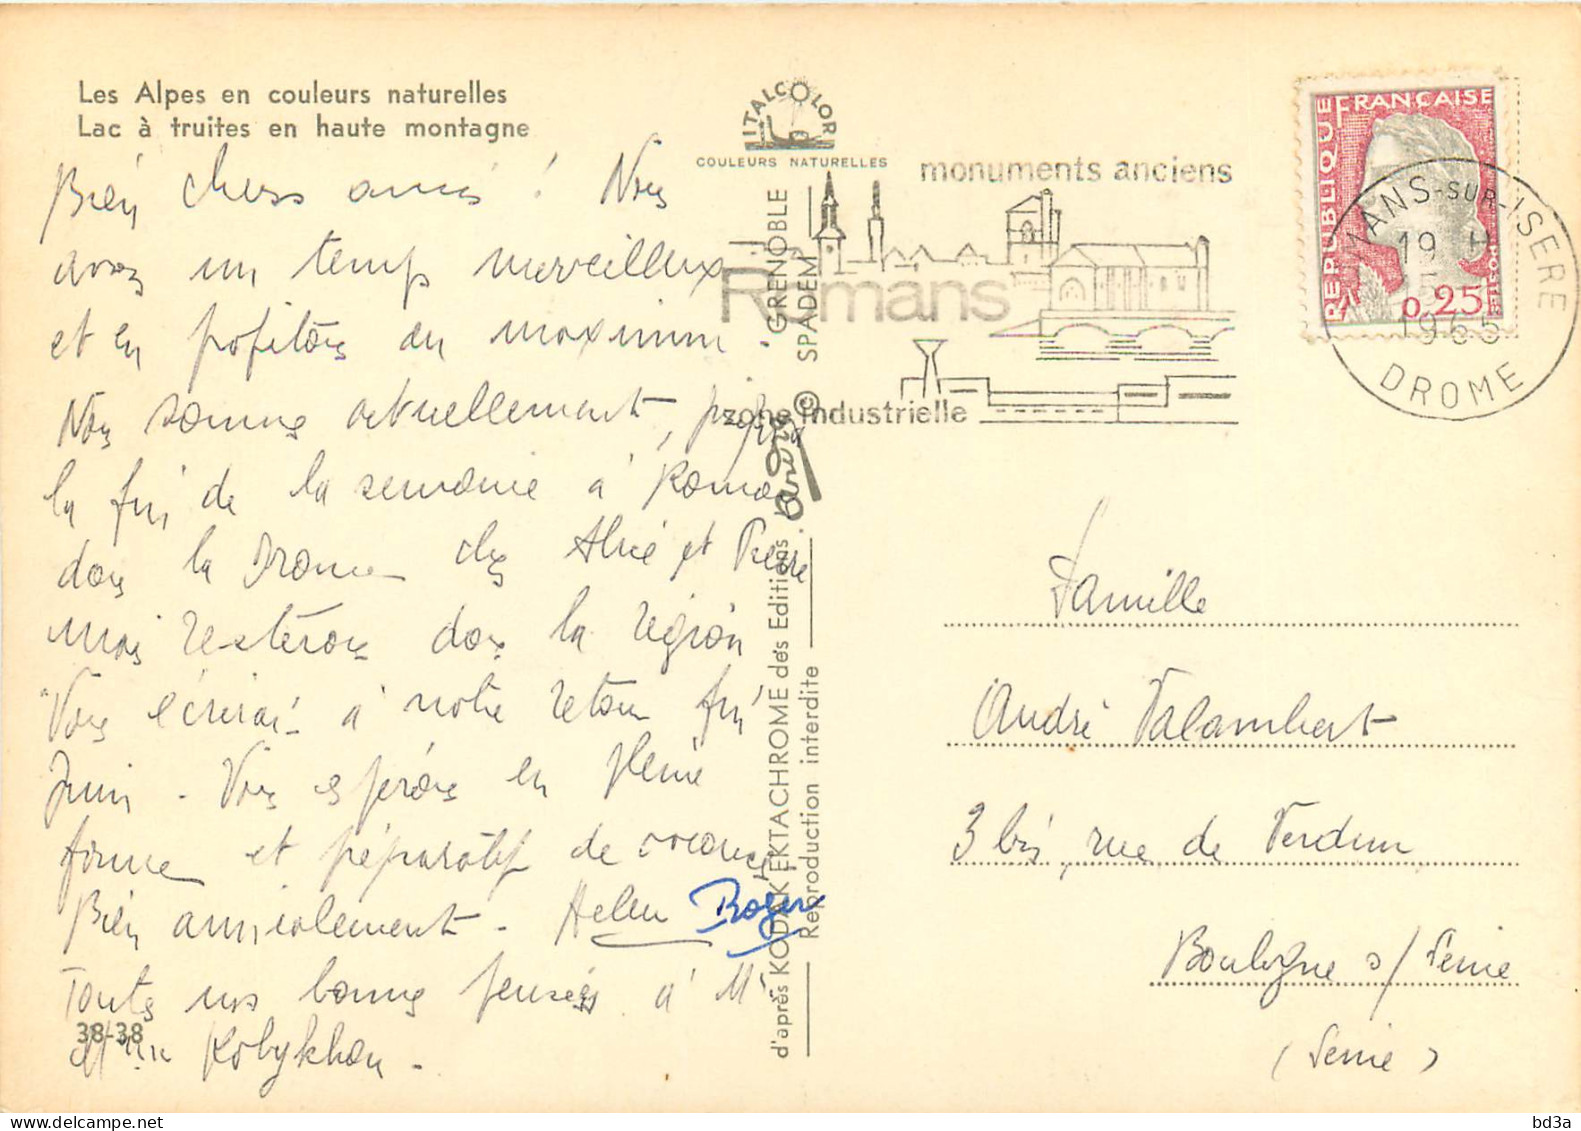 Les Alpes en couleurs naturelles
Lac à truites en haute montagne
Bien chers amis ! Nous
avons un temps merveilleux
et en profitons au maximum.
Nous sommes actuellement, jusqu'à
la fin de la semaine à Romans
dans la Drome chez Aliné et Pierre
mais resterons dans la région
Vous écrirai à notre retour fin
Juin - Vous espérons en pleine
forme et préparatifs de vacances
Bien amicalement - Helen Roger
Toutes nos bonnes pensées à Mr
et Mme Kobykhan.
38-38
ITALCOLOR
COULEURS NATURELLES
d'après KODAK EKTACHROME des Editions André GRENOBLE
Reproduction interdite © SPADEM
monuments anciens
Romans
zone industrielle
REPUBLIQUE FRANÇAISE
0,25
POSTES
ROMANS-SUR-ISERE
19 H
1965
DROME
Famille
André Valambert
3 bis, rue de Verdun
Boulogne s/ Seine
(Seine)